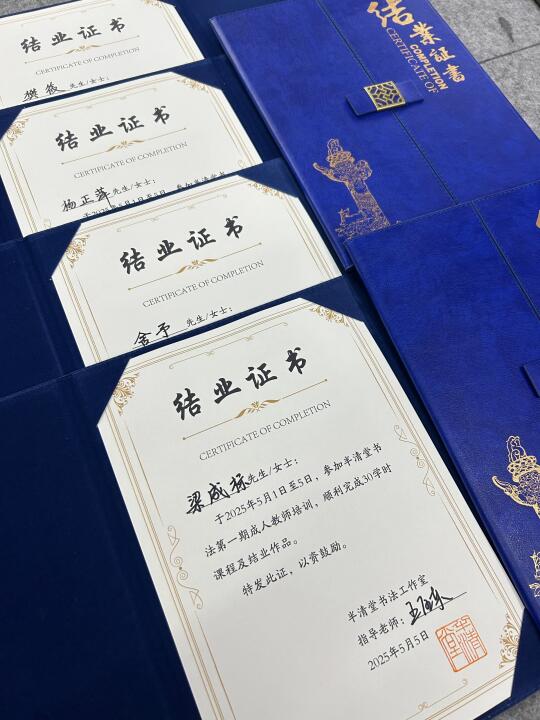 结业证书
CERTIFICATE OF COMPLETION
樊薇先生/女士：
结业证书
CERTIFICATE OF COMPLETION
杨正萍先生/女士：
于2025年5月1日至5日，参加半清堂书
结业证书
CERTIFICATE OF COMPLETION
舍予先生/女士：
结业证书
CERTIFICATE OF COMPLETION
梁成标先生/女士：
于2025年5月1日至5日，参加半清堂书
法第一期成人教师培训，顺利完成30学时
课程及结业作品。
特发此证，以资鼓励。
半清堂书法工作室
指导老师：
2025年5月5日
结業証書
CERTIFICATE OF
COMPLETION